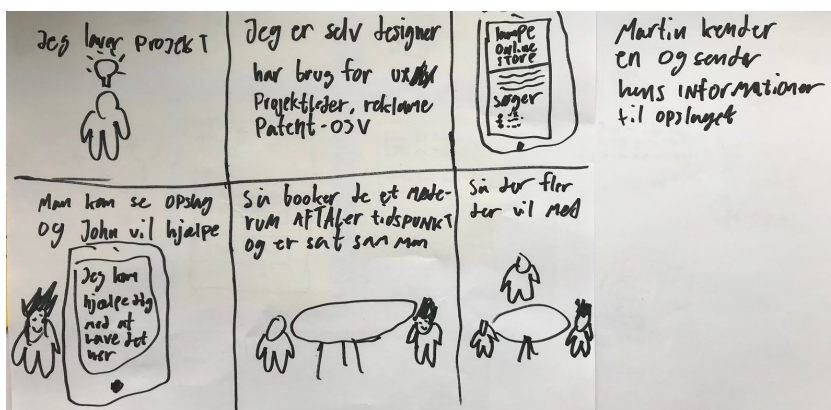 Jeg laver PROJEKT
Jeg er selv designer
har brug for UX
Projektleder, reklame
Patent-OSV
lampe
online
store
søger
Martin kender
en og sender
hans informationer
til opslaget
Man kan se opslag
og John vil hjælpe
Jeg kan
hjælpe dig
med at
lave det
her
Så booker de et møde-
rum AFTALER tidsPUNKT
og er sat sammen
Så der fler
der vil med